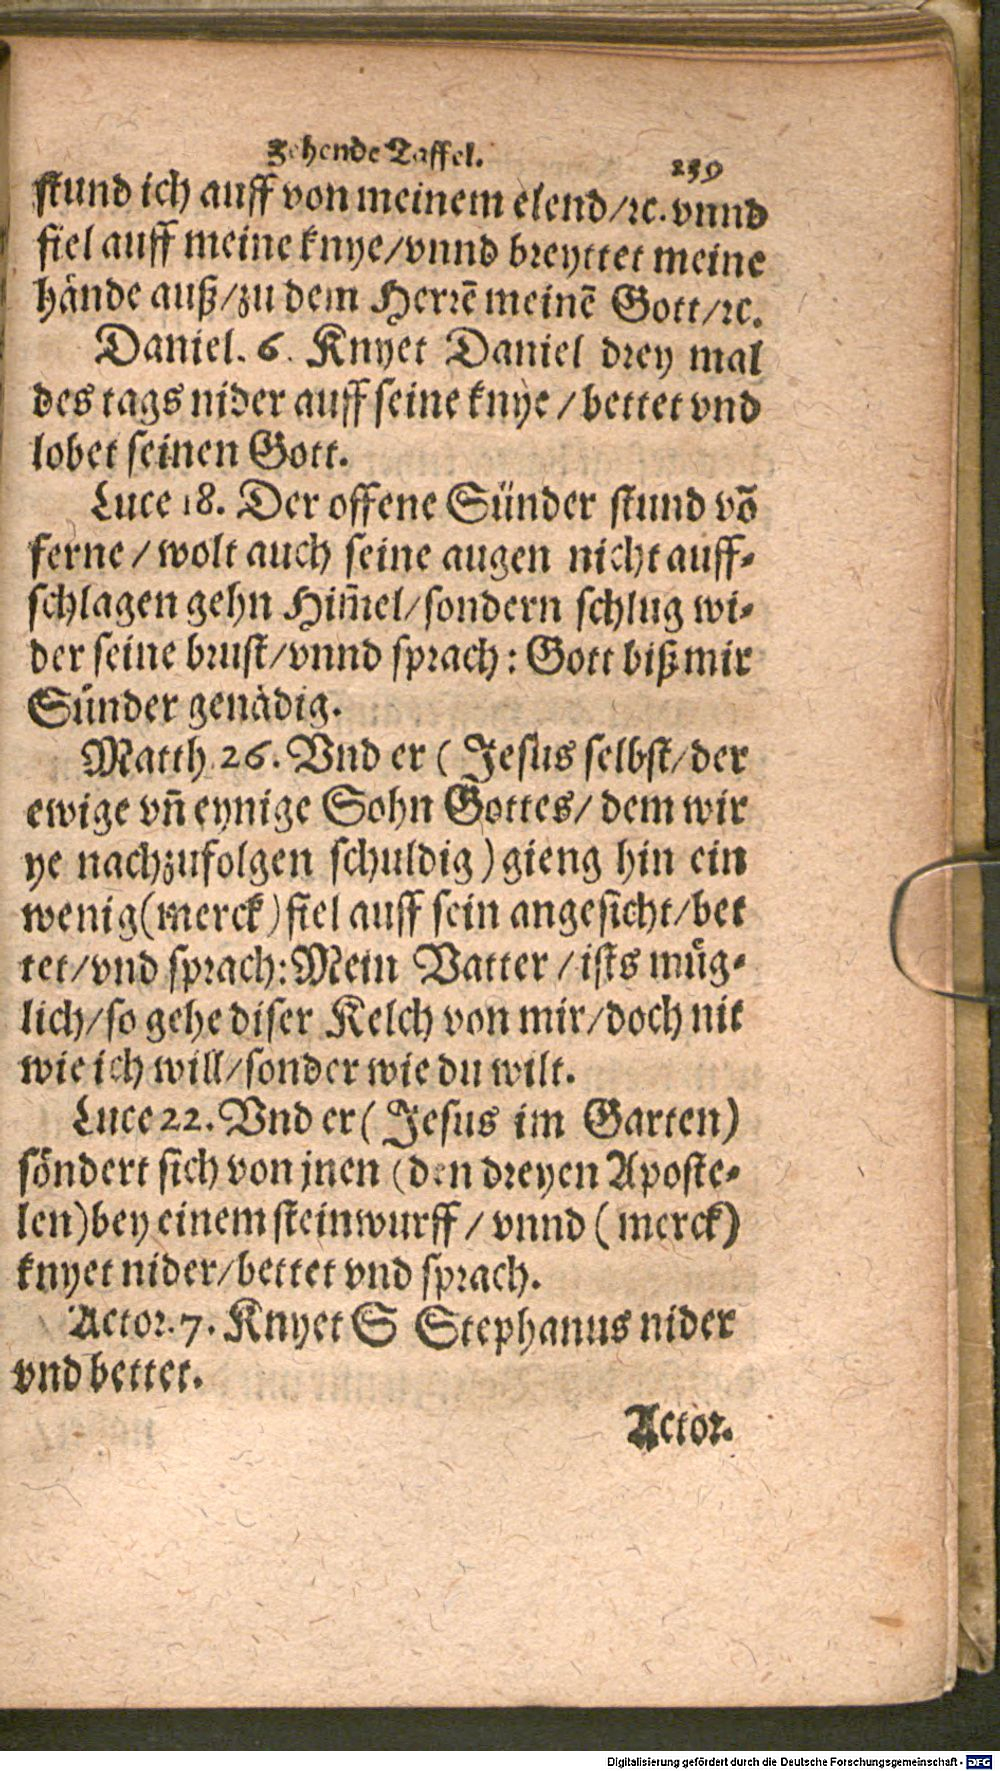 Zehende Taffel. 239
stund ich auff von meinem elend/ꝛc. vnnd
fiel auff meine knye/vnnd breyttet meine
hände auß/zu dem Herrē meinē Gott/ꝛc.
Daniel. 6. Knyet Daniel drey mal
des tags nider auff seine knye/bettet vnd
lobet seinen Gott.
Luce 18. Der offene Sünder stund vō
ferne/wolt auch seine augen nicht auff-
schlagen gehn Him̄el/sondern schlug wi-
der seine brust/vnnd sprach: Gott biß mir
Sünder genädig.
Matth 26. Vnd er (Jesus selbst/der
ewige vn̄ eynige Sohn Gottes/dem wir
ye nachzufolgen schuldig) gieng hin ein
wenig(merck) fiel auff sein angesicht/bet
tet/vnd sprach: Mein Vatter/ists müg-
lich/so gehe diser Kelch von mir/doch nit
wie ich will/sonder wie du wilt.
Luce 22. Vnd er (Jesus im Garten)
söndert sich von jnen (den dreyen Aposte-
len) bey einem steinwurff/vnnd (merck)
knyet nider/bettet vnd sprach.
Actor. 7. Knyet S Stephanus nider
vnd bettet.
Actor.
Digitalisierung gefördert durch die Deutsche Forschungsgemeinschaft - DFG